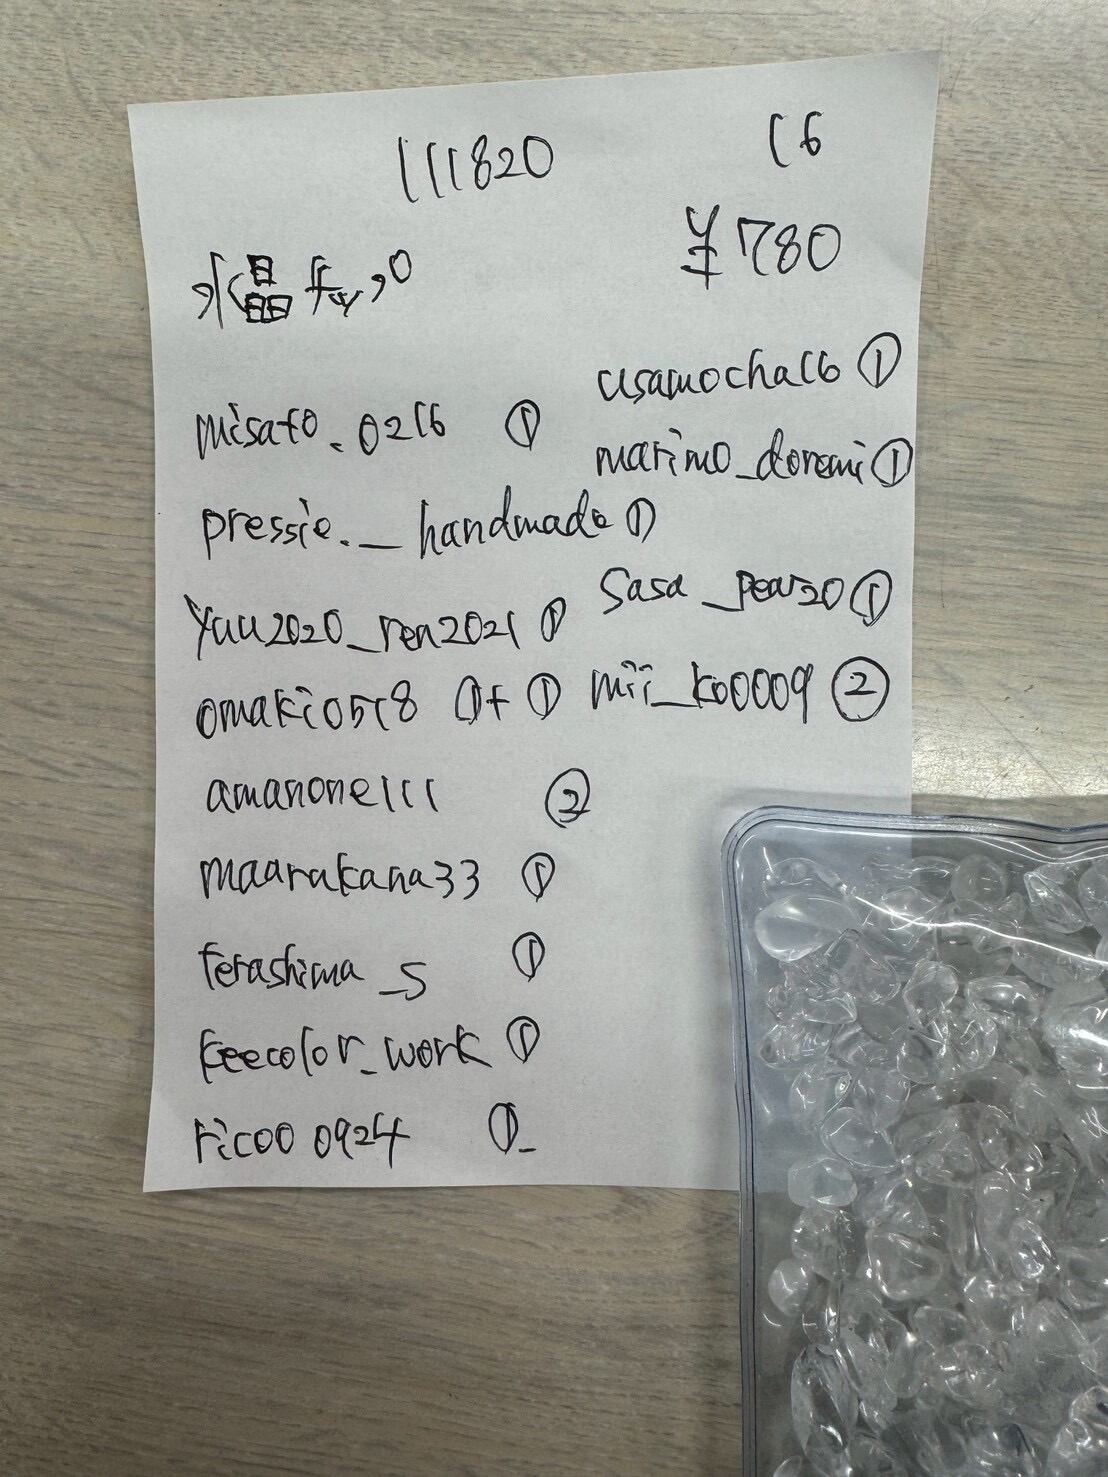 111820
16
¥780
水晶チップ
misato.0216 ①
pressie._handmade ①
yuu2020_ren2021 ①
omaki0518 ①+①
amanone111 ②
maarakana33 ①
terashima_s ①
keecolor_work ①
ricoo0924 ①
usamocha16 ①
marimo_doremi ①
sasa_pear20 ①
mii_ko0009 ②